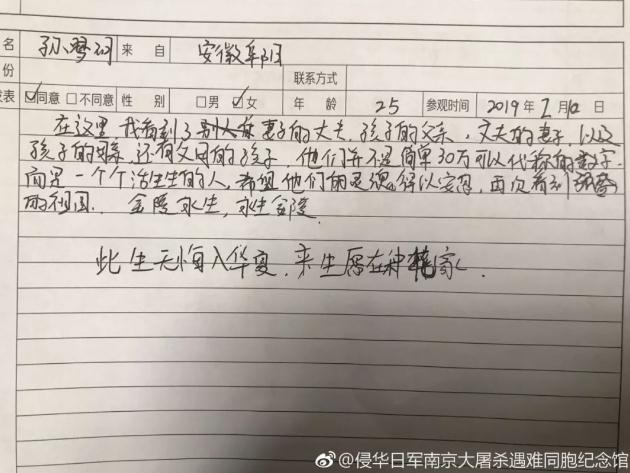 名 孙梦 来 自 安徽阜阳
份 联系方式
发表 ☑同意 □不同意 性 别 □男 ☑女 年 龄 25 参观时间 2019 年 2 月 10 日
在这里,我看到了别人有妻子的丈夫,孩子的父亲,丈夫的妻子,以及
孩子的母亲,还有父母的孩子,他们并不是简单30万可以代称的数字,
而是一个个活生生的人,希望他们的灵魂得以安息,再次看到强盛
的祖国. 金陵永生,永生金陵
此生无悔入华夏,来生愿在种花家.
@侵华日军南京大屠杀遇难同胞纪念馆